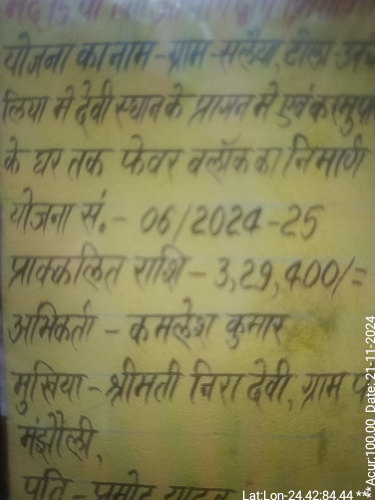 योजना का नाम - ग्राम - सलैया, टोला -
लिया मे देवी स्थान के प्रागन मे एवं
के घर तक फेवर बलॉक का निर्माण
योजना सं. - 06/2024-25
प्राक्कलित राशि - 3,29,400/=
अभिकर्ता - कमलेश कुमार
मुखिया - श्रीमती निरा देवी, ग्राम
मंझौली,
पति - प्रमोद यादव
Lat:Lon-24.42:84.44 *** Acur:100.00 Date:21-11-2024